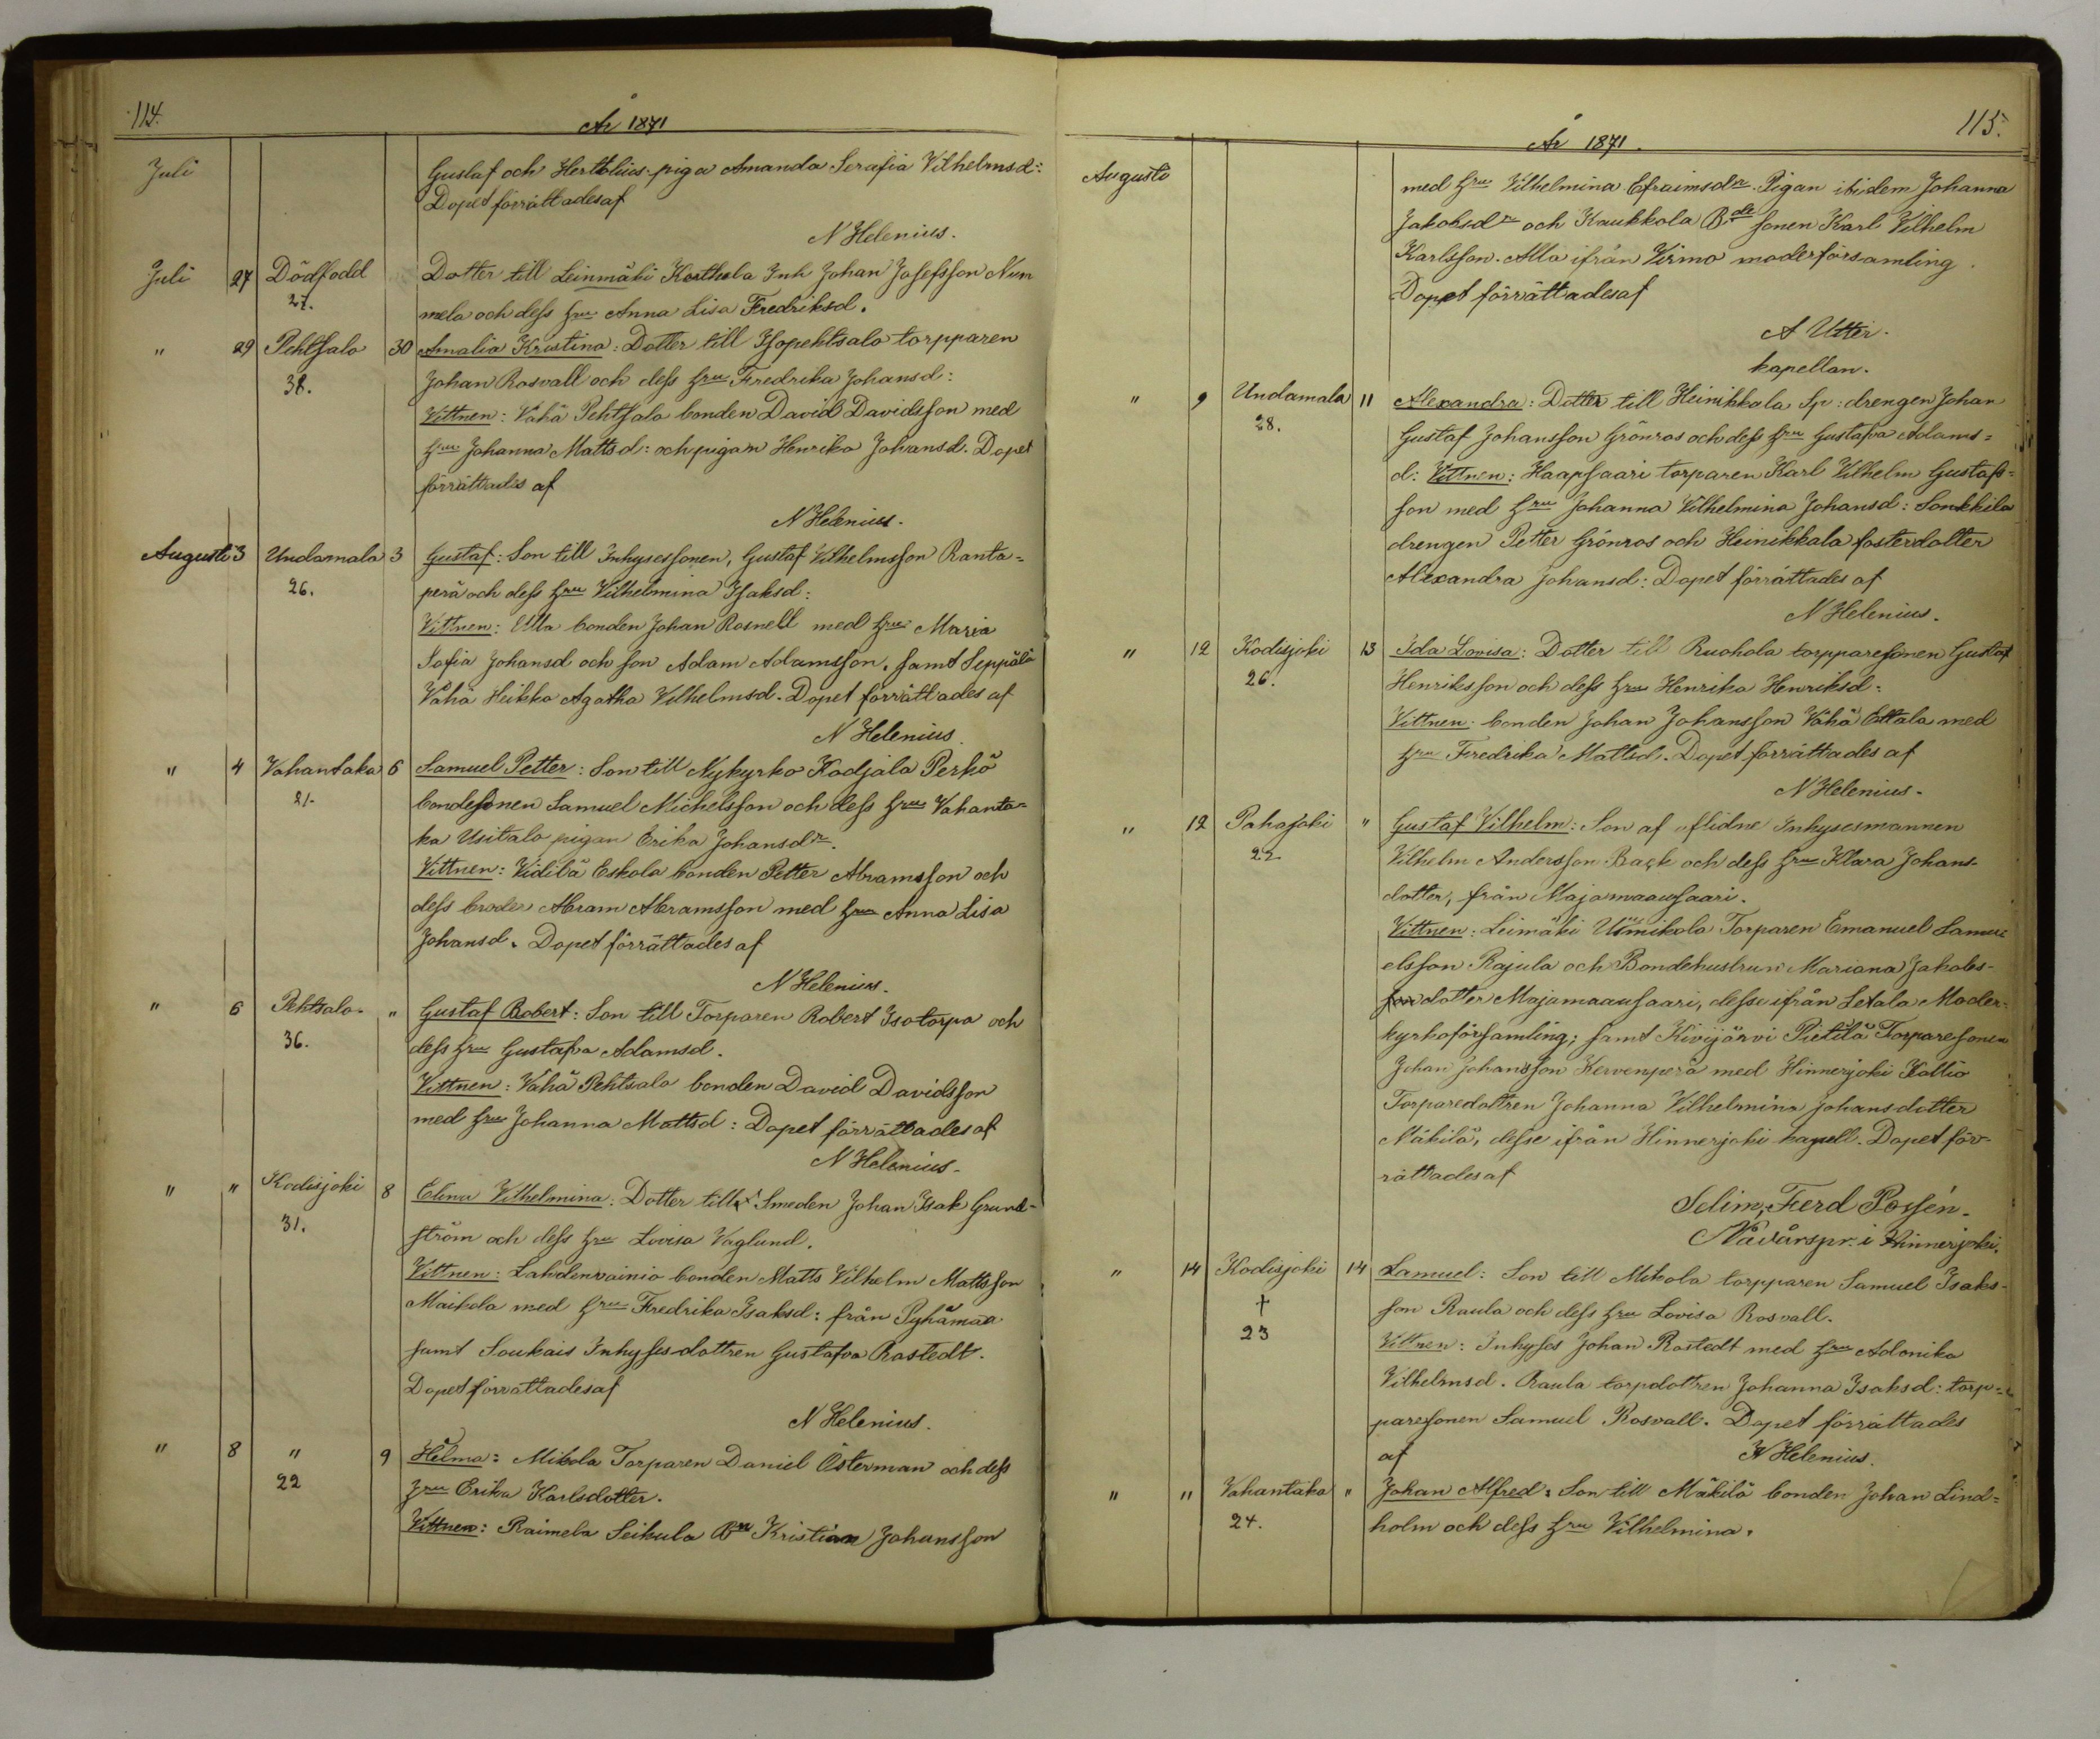 114.
År 1871
Juli Gustaf och Herttolius piga Amanda Serafia Vilhelmsd:
Dopet förrättades af
N Helenius.
Juli 27 Dödfodd Dotter till Leinmäki Korthela Inh Johan Josefsson Num
27. mela och dess hru Anna Lisa Fredriksd.
" 29 Pehtsalo 30 Amalia Kristina: Dotter till Isopehtsalo torpparen
38. Johan Rosvall och dess hru Fredrika Johansd:
Vittnen: Vähä Pehtsalo bonden David Davidsson med
hru Johanna Mattsd: och pigan Henrika Johansd. Dopet
förrättades af
N Helenius.
Augusti 3 Undamala 3 Gustaf: Son till Inhysessonen, Gustaf Vilhelmsson Ranta=
26. perä och dess hru Vilhelmina Isaksd:
Vittnen: Ella bonden Johan Rosnell med hru Maria
Sofia Johansd och son Adam Adamsson. samt Seppälä
Vähä Heikko Agatha Vilhelmsd. Dopet förrättades af
N Helenius.
" 4 Vahantaka 6 Samuel Petter: Son till Nykyrko Kodjala Perhö
21. bondesonen Samuel Michelsson och dess hru Vahanta=
ka Usitalo pigan Erika Johansdr.
Vittnen: Vidilä Eskola bonden Petter Abramsson och
dess broder Abram Abramsson med hru Anna Lisa
Johansd. Dopet förrättades af
N Helenius.
" 6 Pehtsalo. " Gustaf Robert: Son till Torparen Robert Isotorpa och
36. dess hru Gustafva Adamsd.
Vittnen: Vähä Pehtsalo bonden David Davidsson
med hru Johanna Mattsd: Dopet förrättades af
N Helenius.
" " Kodisjoki 8 Elina Vilhelmina: Dotter till Smeden Johan Isak Grund-
31. ström och dess hru Lovisa Vaglund.
Vittnen: Lahdenvainio bonden Matts Vilhelm Mattsson
Maikola med hru Fredrika Isaksd: från Pyhämaa
samt Soukais Inhyses dottren Gustafva Rastedt.
Dopet förrättades af
N Helenius.
" 8 " 9 Helma: Mikola Torparen Daniel Österman och dess
22 hru Erika Karlsdotter.
Vittnen: Raimela Seikula Bn Kristian Johansson
115.
År 1871.
Augusti med hru Vilhelmina Efraimsdr. Pigan ibidem Johanna
Jakobsdr och Kaukkola Bde sonen Karl Vilhelm
Karlsson. Alla ifrån Virmo moderförsamling.
Dopet förrättades af
A Utter.
kapellan.
" 9 Undamala 11 Alexandra: Dotter till Heinikkala Sp: drengen Johan
28. Gustaf Johansson Grönros och dess hru Gustafva Adams=
d: Vittnen: Haapsaari torparen Karl Vilhelm Gustafs=
son med hru Johanna Vilhelmina Johansd: Sonkkila
drengen Petter Grönros och Heinikkala fosterdotter
Alexandra Johansd: Dopet förrättades af
N Helenius.
" 12 Kodisjoki 13 Ida Lovisa: Dotter till Ruohola torpparesonen Gustaf
26. Henriksson och dess hru Henrika Henriksd:
Vittnen: bonden Johan Johansson Vähä Ettala med
hru Fredrika Mattsd. Dopet förrättades af
N Helenius.
" 12 Pahajoki " Gustaf Vilhelm: Son af aflidne Inhysesmannen
22 Vilhelm Andersson Back och dess hru Klara Johans-
dotter, från Majamaansaari.
Vittnen: Leimäki Torparen Emanuel Samu
elsson Rajula och Bondehustrun Mariana Jakobs-
dotter Majamaansaari, desse ifrån Letala Moder-
kyrkoförsamling; samt Kivijärvi Pietilä Torparesonen
Johan Johansson Kervenperä med Hinnerjoki Kallio
Torparedottren Johanna Vilhelmina Johansdotter
Mäkilä, desse ifrån Hinnerjoki kapell. Dopet för-
rättades af
Selim, Ferd Possén.
Nådårspr. i Hinnerjoki.
" 14 Kodisjoki 14 Samuel: Son till Mikola torpparen Samuel Isaks-
† son Raula och dess hru Lovisa Rosvall.
23 Vittnen: Inhyses Johan Rastedt med hru Adonika
Vilhelmsd. Raula torpdottren Johanna Isaksd: torp=
paresonen Samuel Rosvall. Dopet förrättades
af N Helenius.
" " Vahantaka " Johan Alfred: Son till Mäkilä bonden Johan Lind=
24. holm och dess hru Vilhelmina.